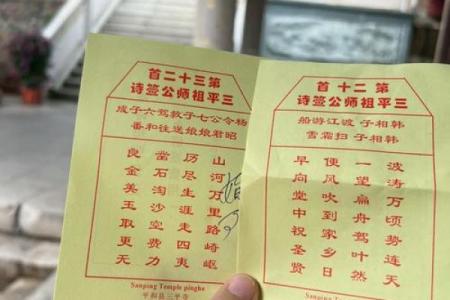 第二十首
三平祖师公签诗
韩相子渡江游船
韩相子扫霜雪
波涛万顷势连天
一望扁舟驾叶然
便风吹到家乡日
早向堂中祝圣贤
第三十二首
三平祖师公签诗
杨令公七子教驾六子成
昭君娘娘送往和番
山河万里路崎岖
历尽生涯走四夷
凿石淘沙空费力
良金美玉取更无
Sanping Temple pinghe
平和县三平寺